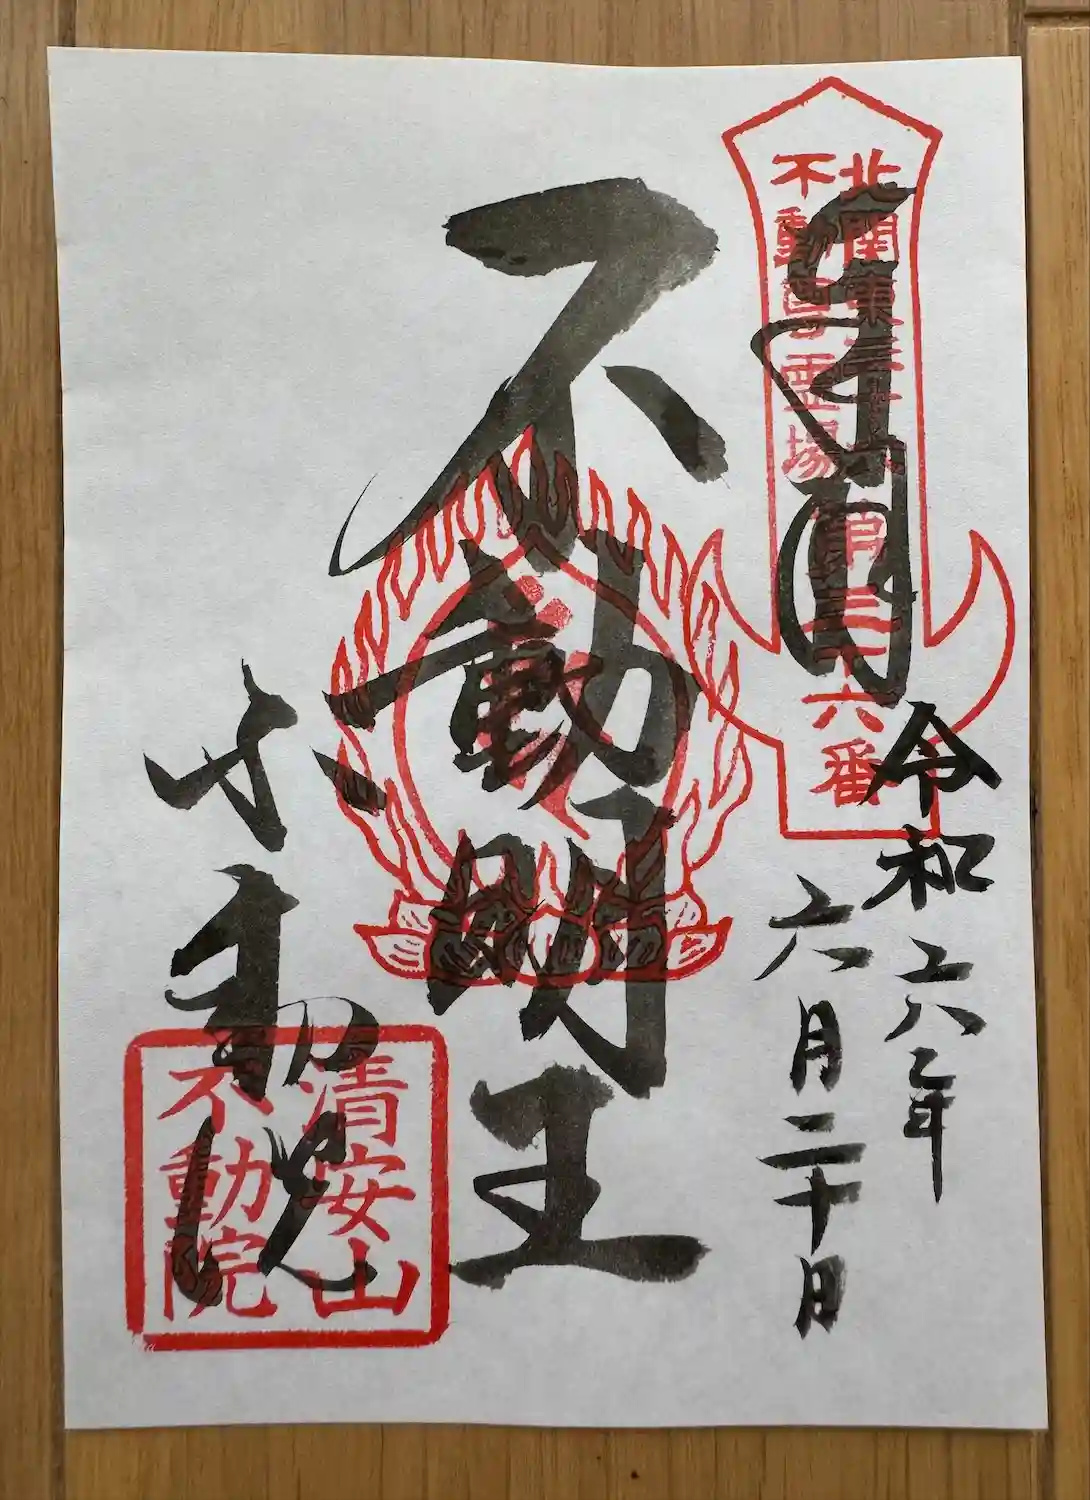 北関東三十六
不動尊霊場
第三十六番
令和六年
六月二十日
不動明王
不動院
清安山
不動院